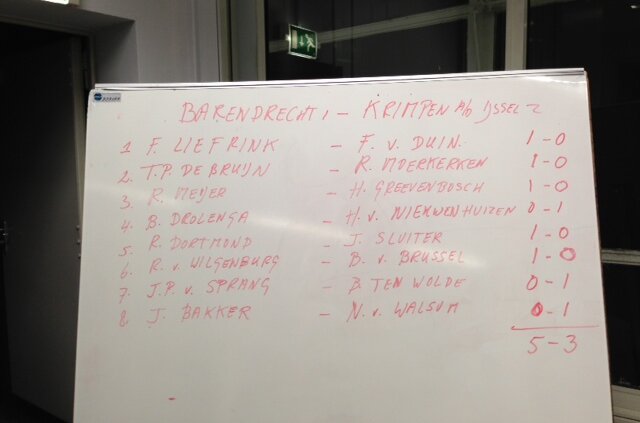 BARENDRECHT 1 - KRIMPEN A/D IJSSEL 2
1 F. LIEFRINK - F. v. DUIN. 1-0
2. T.P. DE BRUIJN - R. MOERKERKEN 1-0
3 R. MEIJER - H. GREEVENBOSCH 1-0
4 B. DROLENGA - H. v. NIEUWENHUIZEN 0-1
5. R. DORTMOND - J. SLUITER 1-0
6. R. v. WILGENBURG - B. v. BRUSSEL 1-0
7. J.P. v. SPRANG - B. TEN WOLDE 0-1
8. J. BAKKER - N. v. WALSUM 0-1
5-3